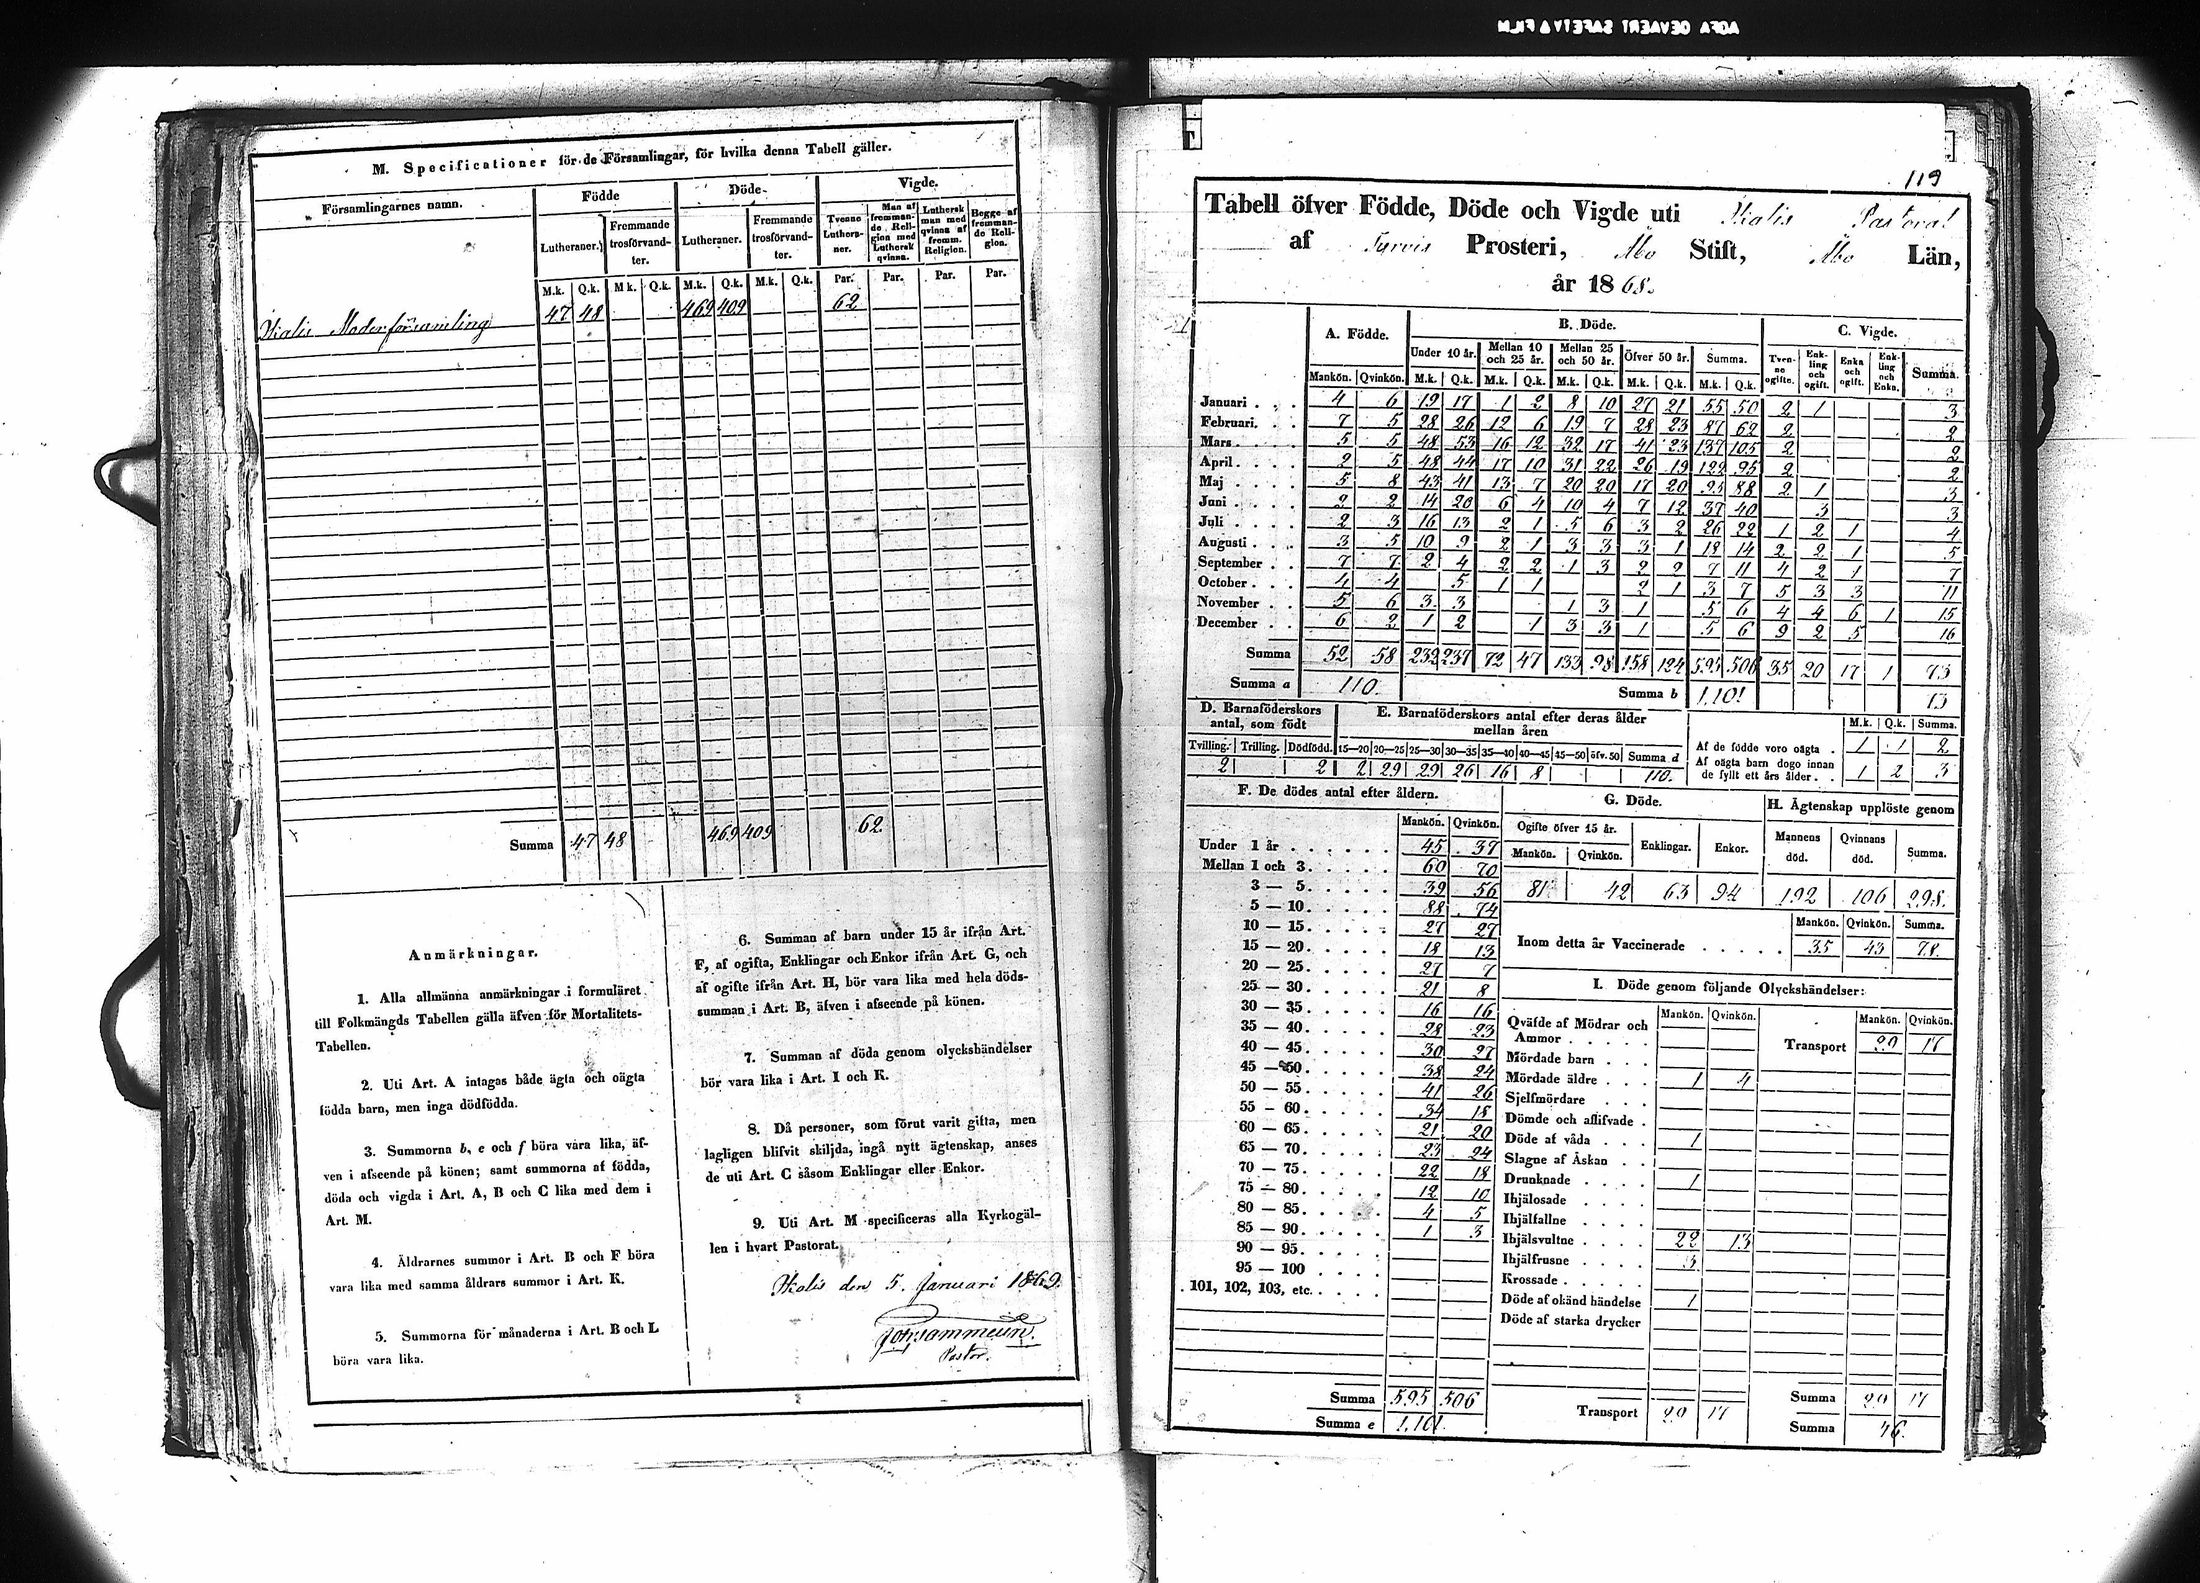 AGFA GEVAERT SAFETY FILM
M. Specificationer för de Församlingar, för hvilka denna Tabell gäller.
Församlingarnes namn. Födde Döde. Vigde.
Lutheraner. Fremmande trosförvandter. Lutheraner. Fremmande trosförvandter. Tvenne Lutheraner. Man af fremmande Religion med Luthersk qvinna. Luthersk man med qvinna af fremm. Religion. Begge af fremmande Religion.
M.k. Q.k. M.k. Q.k. M.k. Q.k. M.k. Q.k. Par. Par. Par. Par.
Ikalis Moderförsamling 47 48 469 409 62
Summa 47 48 469 409 62
Anmärkningar.
1. Alla allmänna anmärkningar i formuläret
till Folkmängds Tabellen gälla äfven för Mortalitets-
Tabellen.
2. Uti Art. A intagas både ägta och oägta
födda barn, men inga dödfödda.
3. Summorna b, e och f böra vara lika, äf-
ven i afseende på könen; samt summorna af födda,
döda och vigda i Art. A, B och C lika med dem i
Art. M.
4. Åldrarnes summor i Art. B och F böra
vara lika med samma åldrars summor i Art. K.
5. Summorna för månaderna i Art. B och L
böra vara lika.
6. Summan af barn under 15 år ifrån Art.
F, af ogifta, Enklingar och Enkor ifrån Art. G, och
af ogifte ifrån Art. H, bör vara lika med hela döds-
summan i Art. B, äfven i afseende på könen.
7. Summan af döda genom olyckshändelser
bör vara lika i Art. I och K.
8. Då personer, som förut varit gifta, men
lagligen blifvit skiljda, ingå nytt ägtenskap, anses
de uti Art. C såsom Enklingar eller Enkor.
9. Uti Art. M specificeras alla Kyrkogäl-
len i hvart Pastorat.
Ikalis den 5. Januari 1869.
Pastor.
119
Tabell öfver Födde, Döde och Vigde uti Ikalis Pastorat
af Tyrvis Prosteri, Åbo Stift, Åbo Län,
år 1868.
A. Födde. B. Döde. C. Vigde.
Under 10 år. Mellan 10 och 25 år. Mellan 25 och 50 år. Öfver 50 år. Summa. Tvenne ogifte. Enkling och ogift. Enka och ogift. Enkling och Enka. Summa.
Mankön. Qvinkön. M.k. Q.k. M.k. Q.k. M.k. Q.k. M.k. Q.k. M.k. Q.k.
Januari 4 6 19 17 1 2 8 10 27 21 55 50 2 1 3
Februari 7 5 28 26 12 6 19 7 28 23 87 62 2 2
Mars 5 5 48 53 16 12 32 17 41 23 137 105 2 2
April 2 5 48 44 17 10 31 22 26 19 122 95 2 2
Maj 5 8 43 41 13 7 20 20 17 20 93 88 2 1 3
Juni 2 2 14 20 6 4 10 4 7 12 37 40 3 3
Juli 2 3 16 13 2 1 5 6 3 2 26 22 1 2 1 4
Augusti 3 5 10 9 2 1 3 3 3 1 18 14 2 2 1 5
September 7 7 2 4 2 2 1 3 2 2 7 11 4 2 1 7
October 4 4 5 1 1 2 1 3 7 5 3 3 11
November 5 6 3 3 1 3 1 5 6 4 4 6 1 15
December 6 2 1 2 1 3 3 1 5 6 9 2 5 16
Summa 52 58 232 237 72 47 133 98 158 124 595 506 35 20 17 1 73
Summa a 110. Summa b 1,101 73
D. Barnaföderskors antal, som födt
E. Barnaföderskors antal efter deras ålder mellan åren
M.k. Q.k. Summa.
Tvilling. Trilling. Dödfödd. 15—20 20—25 25—30 30—35 35—40 40—45 45—50 öfv. 50 Summa d
2 2 2 29 29 26 16 8 110.
Af de födde voro oägta 1 1 2
Af oägta barn dogo innan
de fyllt ett års ålder 1 2 3
F. De dödes antal efter åldern.
Mankön. Qvinkön.
Under 1 år 45 37
Mellan 1 och 3 60 70
3 — 5 39 56
5 — 10 88 74
10 — 15 27 27
15 — 20 18 13
20 — 25 27 7
25 — 30 21 8
30 — 35 16 16
35 — 40 28 23
40 — 45 30 27
45 — 50 38 24
50 — 55 41 26
55 — 60 34 18
60 — 65 21 20
65 — 70 23 24
70 — 75 22 18
75 — 80 12 10
80 — 85 4 5
85 — 90 1 3
90 — 95
95 — 100
101, 102, 103, etc.
Summa 595 506
Summa e 1,101.
G. Döde.
Ogifte öfver 15 år. Enklingar. Enkor.
Mankön. Qvinkön.
81 42 63 94
H. Ägtenskap upplöste genom
Mannens död. Qvinnans död. Summa.
192 106 298.
Mankön. Qvinkön. Summa.
Inom detta år Vaccinerade 35 43 78.
I. Döde genom följande Olyckshändelser:
Mankön. Qvinkön. Mankön. Qvinkön.
Qväfde af Mödrar och
Ammor
Transport 29 17
Mördade barn
Mördade äldre 1 4
Sjelfmördare
Dömde och aflifvade
Döde af våda 1
Slagne af Åskan
Drunknade 1
Ihjälosade
Ihjälfallne
Ihjälsvultne 22 13
Ihjälfrusne 3
Krossade
Döde af okänd händelse 1
Döde af starka drycker
Transport 29 17
Summa 29 17
Summa 46.